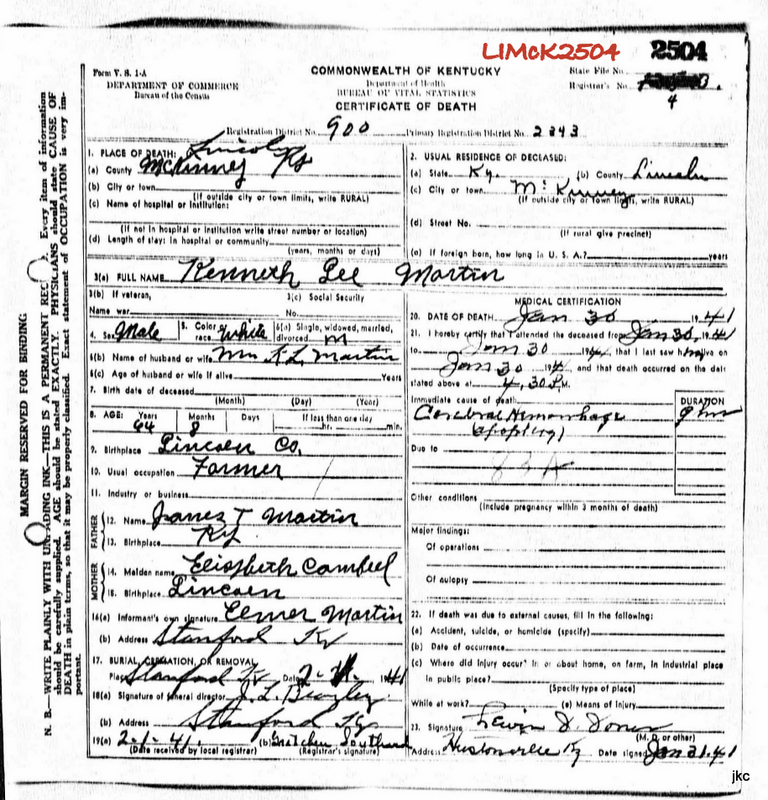 LIMcK2504 2504
Form V. S. 1-A
DEPARTMENT OF COMMERCE
Bureau of the Census
COMMONWEALTH OF KENTUCKY
Department of Health
BUREAU OF VITAL STATISTICS
CERTIFICATE OF DEATH
State File No.
Registrar's No.
4
Registration District No. 900 Primary Registration District No. 2343
MARGIN RESERVED FOR BINDING
N. B.—WRITE PLAINLY WITH UNFADING INK—THIS IS A PERMANENT REC Every item of information
should be carefully supplied. AGE should be stated EXACTLY. PHYSICIANS should state CAUSE OF
DEATH in plain terms, so that it may be properly classified. Exact statement of OCCUPATION is very im-
portant.
1. PLACE OF DEATH: Lincoln Ky
(a) County McKinney
(b) City or town
(If outside city or town limits, write RURAL)
(c) Name of hospital or institution:
(If not in hospital or institution write street number or location)
(d) Length of stay: In hospital or community
(years, months or days)
2. USUAL RESIDENCE OF DECEASED:
(a) State Ky. (b) County Lincoln
(c) City or town McKinney
(If outside city or town limits, write RURAL)
(d) Street No.
(If rural give precinct)
(e) If foreign born, how long in U. S. A.? years
3(a) FULL NAME Kenneth Lee Martin
3(b) If veteran, 3(c) Social Security
Name war No.
4. Sex Male 5. Color or race White 6(a) Single, widowed, married, divorced m
6(b) Name of husband or wife Mrs K.L. Martin
6(c) Age of husband or wife if alive Years
7. Birth date of deceased
(Month) (Day) (Year)
8. AGE: Years Months Days If less than one day
64 8 hr. min.
9. Birthplace Lincoln Co.
10. Usual occupation Farmer
11. Industry or business
FATHER
12. Name James T Martin
13. Birthplace Ky
MOTHER
14. Maiden name Eliszbeth Cambell
15. Birthplace Lincoln
16(a) Informant's own signature Elmer Martin
(b) Address Stanford Ky
17. BURIAL, CREMATION, OR REMOVAL
Place Stanford Ky Date 2- 1941
18(a) Signature of funeral director J. L. Beazley
(b) Address Stanford Ky
19(a) 2-1-41. (b) Gretchen Southard
(Date received by local registrar) (Registrar's signature)
MEDICAL CERTIFICATION
20. DATE OF DEATH Jan 30 1941
21. I hereby certify that I attended the deceased from Jan 30, 1941
to Jan 30 1941, that I last saw him alive on
Jan 30 1941 and that death occurred on the date
stated above at 4,30 P.M.
Immediate cause of death DURATION
Cerebral Hemorrhage 9 hrs
(apoplexy)
Due to
83A
Other conditions
(Include pregnancy within 3 months of death)
Major findings:
Of operations
Of autopsy
22. If death was due to external causes, fill in the following:
(a) Accident, suicide, or homicide (specify)
(b) Date of occurrence
(c) Where did injury occur? In or about home, on farm, in industrial place
in public place?
(Specify type of place)
While at work? (e) Means of injury
23. Signature D. Jones
(M. D. or other)
Address Hustonville Ky Date signed Jan 31.41
jkc